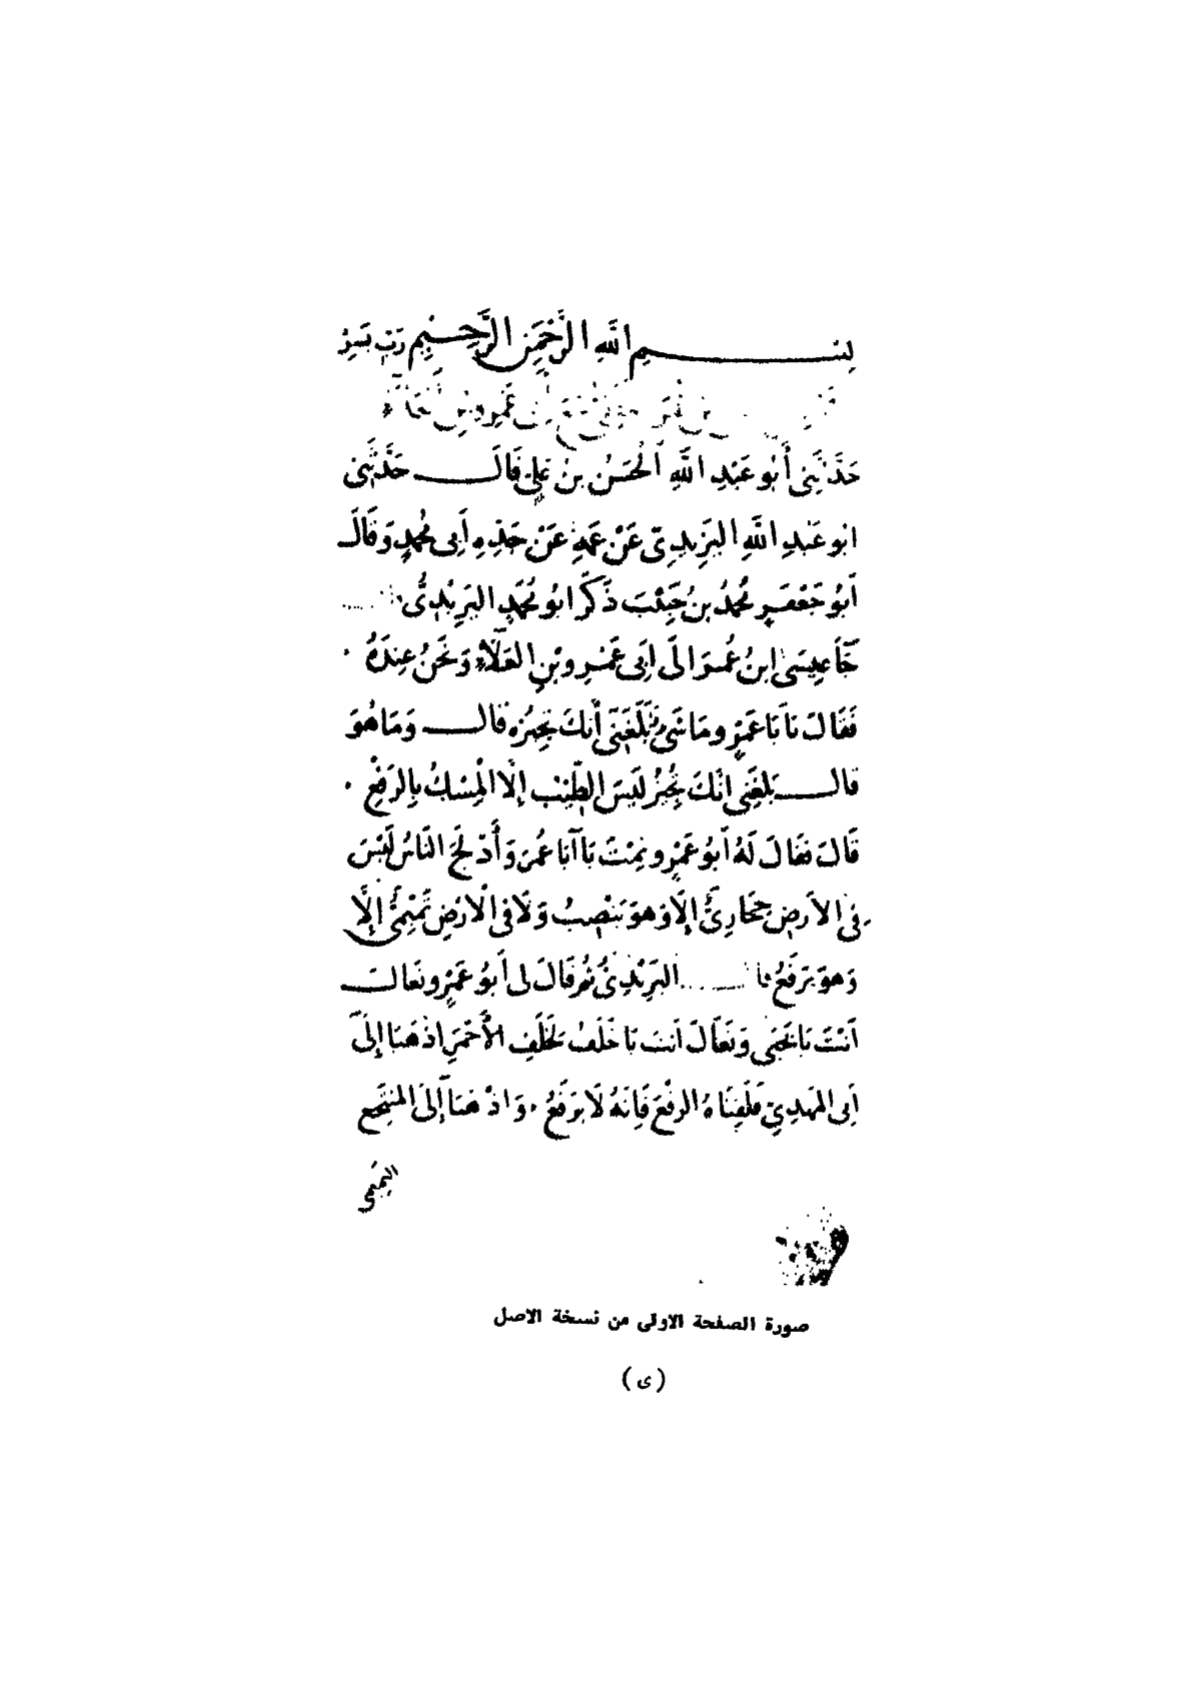 بسم الله الرحمن الرحيم رب يسر
بن عمرو بن
حَدَّثَنِي أَبُو عَبْدِ اللهِ الْحَسَنُ بنُ عَلِيّ قَالَ حَدَّثَنِي
ابو عَبْدِ اللهِ اليَزِيدِيّ عَنْ عَمِّهِ عَنْ جَدِّهِ أَبِي مُحَمدٍ وَقَالَ
أَبُو جَعْفَرٍ مُحَمدُ بنُ حَبِيْبَ ذَكَرَ ابُو مُحَمَّدٍ اليَزِيْدِيُّ
جَاءَ عِيسَى ابنُ عُمَرَ الَى أَبِي عَمْرِو بْنِ العَلَاءِ وَنَحْنُ عِندَهُ .
فَقَالَ يَا بَا عَمْرٍو مَا شَيْءٌ بَلَغَنِي أَنكَ تُجِيزُهُ قال وَمَا هُوَ
قال بَلغَنِي انَّكَ تُجِيزُ لَيسَ الطِّيْبُ إِلَّا الْمِسْكُ بِالرَفْعِ .
قَالَ فقَالَ لَهُ أَبُو عَمْرٍو نِمْتَ يَا أَبَا عُمَرَ وَأَدْلَجَ النَّاسُ لَيْسَ
فِي الأَرضِ حِجَازِيٌّ إِلَّا وَهوَ يَنْصِبُ وَلَا فِي الْأَرْضِ تَمِيمِيٌّ إِلَّا
وَهوَ يَرفَعُ ..... اليَزِيْدِيُّ ثُمَّ قَالَ لِي أَبُو عَمْرٍو تَعَالَ
أَنْتَ يَا يَحْيَى وَتَعَالَ أَنتَ يَا خَلَفُ لخَلَفٍ الْأَحْمَرِ اذْهَبَا إِلَى
أَبِي المَهدِيّ فَلَقِّنَاهُ الرفْعَ فَإِنَّهُ لَا يَرفَعُ . وَاذْهَبَا إِلَى المُنتَجِعِ
التميمي
صورة الصفحة الاولى من نسخة الاصل
(ى)